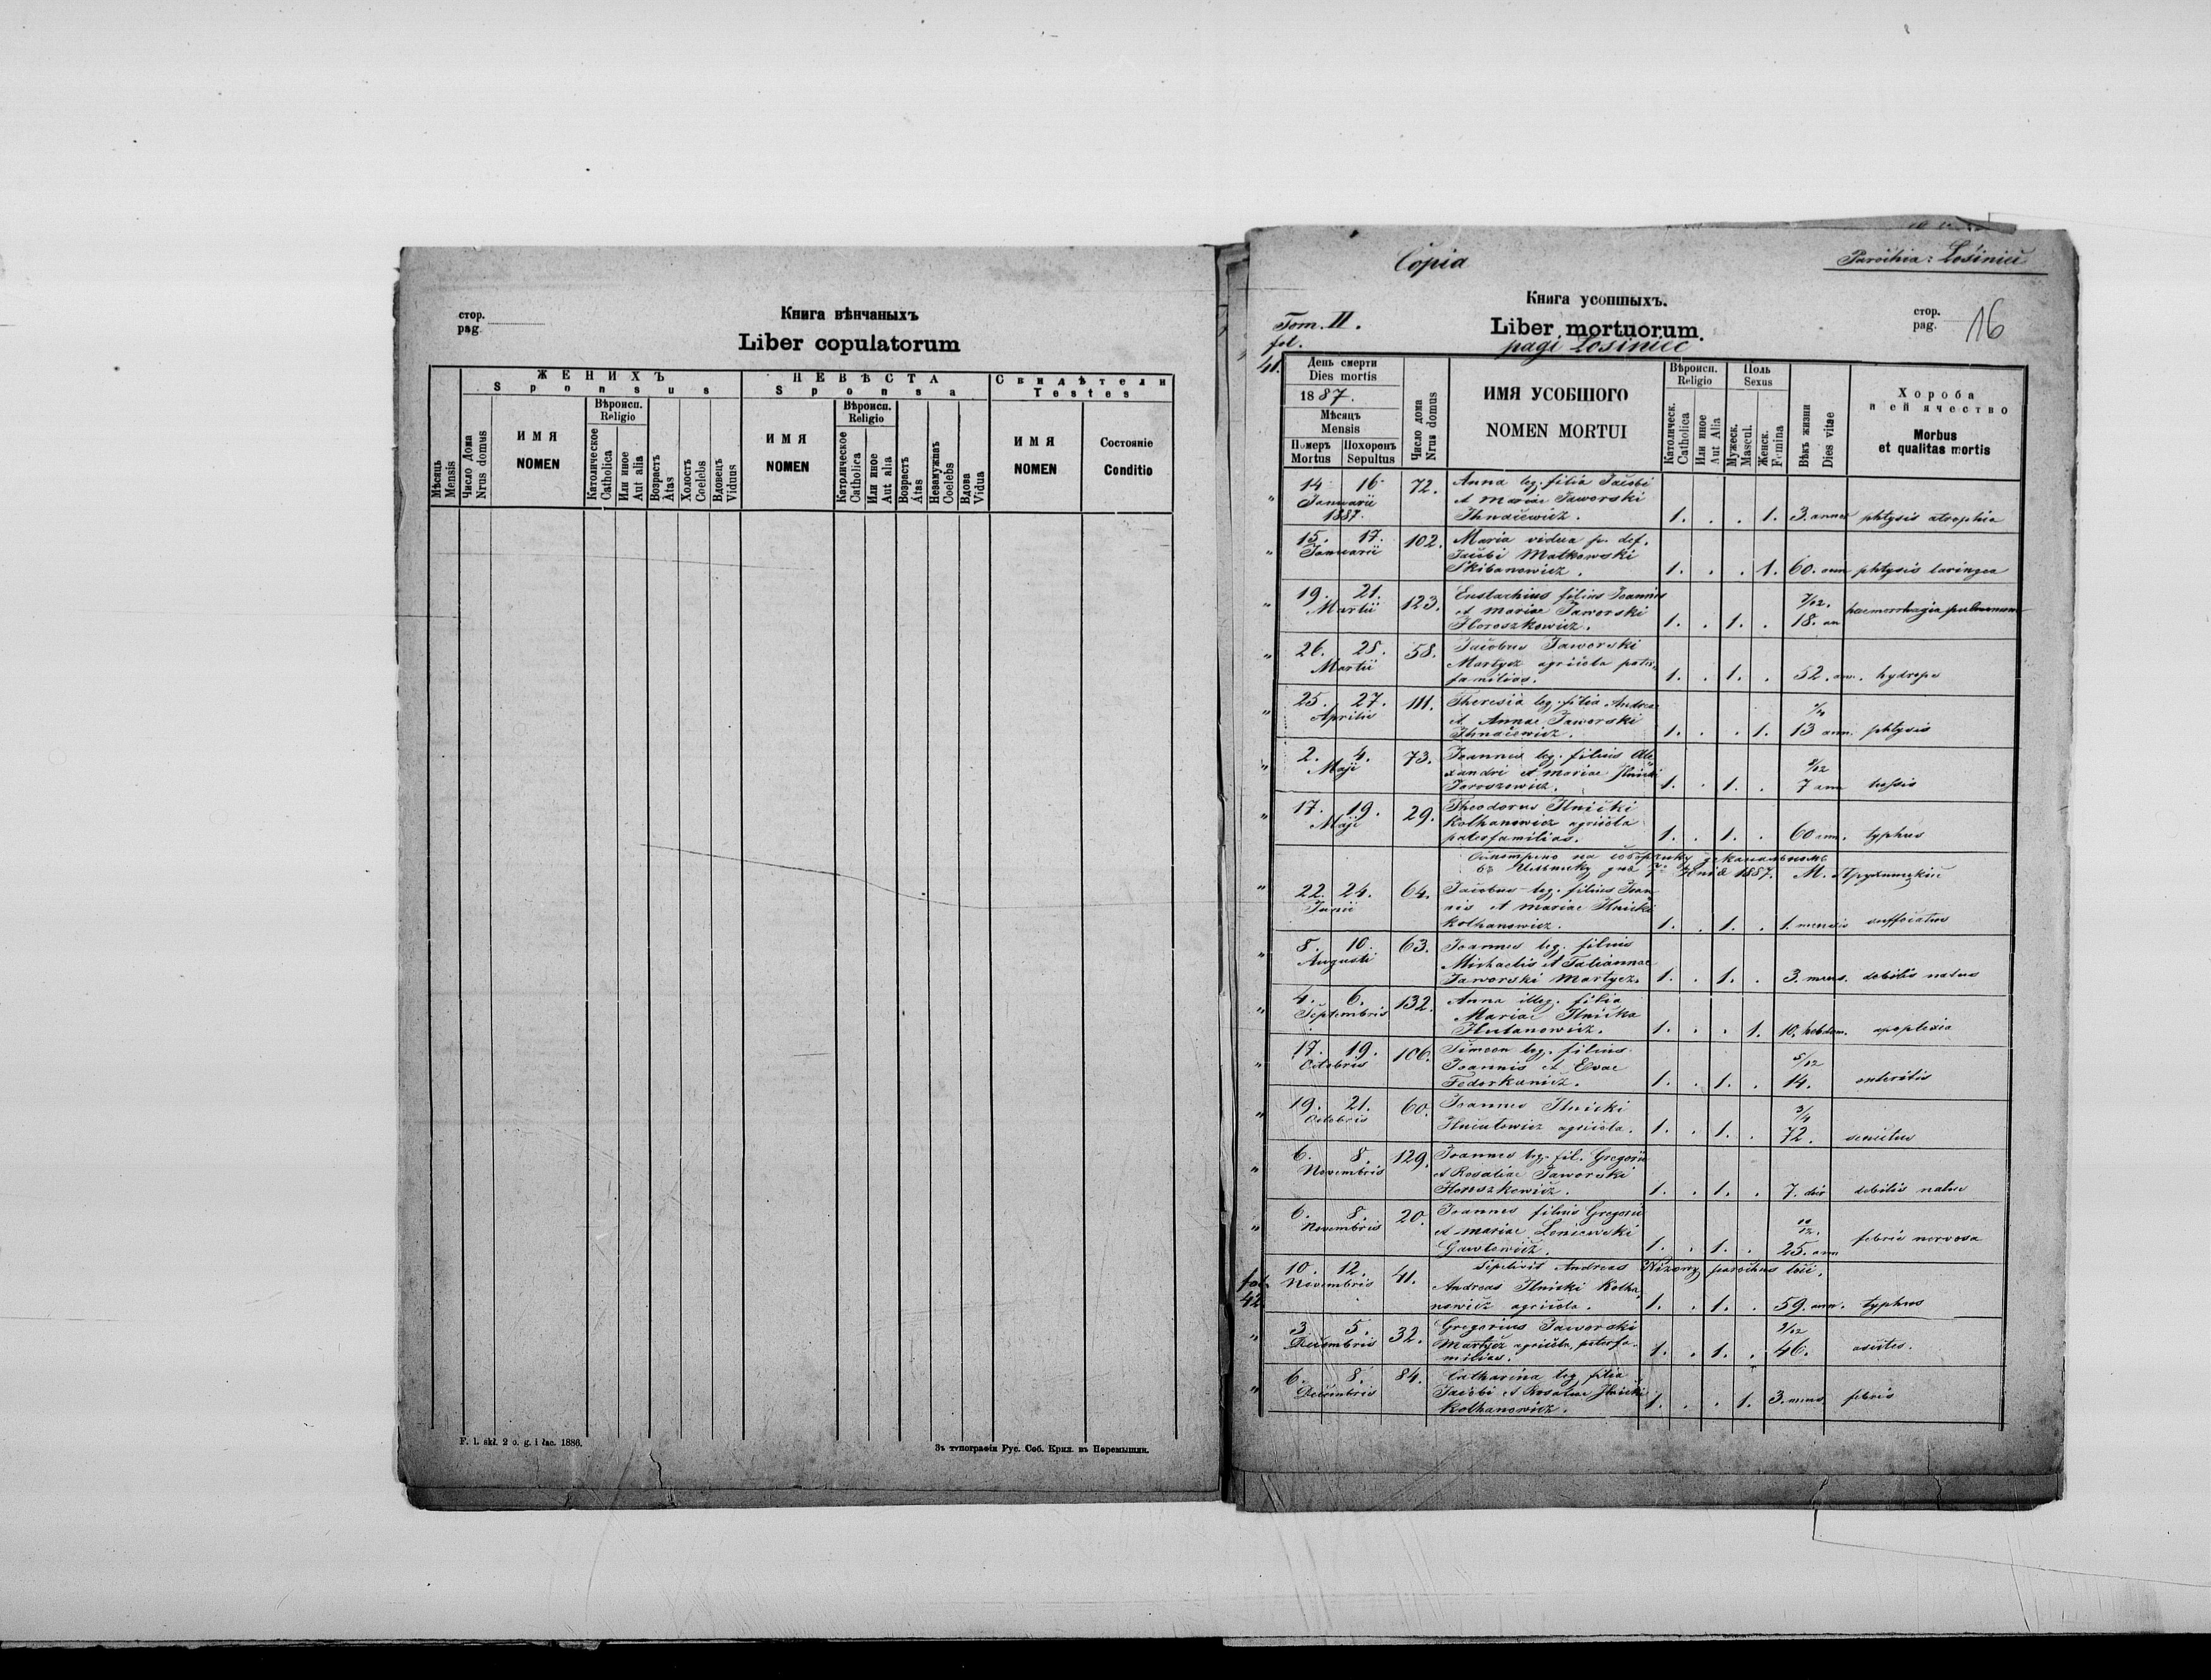 стор.
pag.
Книга вѣнчаныхъ
Liber copulatorum
Мѣсяць
Mensis
ЖЕНИХЪ
Sponsus
НЕВѢСТА
Sponsa
Свидѣтели
Testes
Число Дома
Nrus domus
ИМЯ
NOMEN
Вѣроисп.
Religio
Католическое
Catholica
Или иное
Aut alia
Возрастъ
Átas
Холостъ
Coelebs
Вдовецъ
Viduus
ИМЯ
NOMEN
Вѣроисп.
Religio
Католическое
Catholica
Или иное
Aut alia
Возрастъ
Átas
Незамужнать
Coelebs
Вдова
Vidua
ИМЯ
NOMEN
Состоянiе
Conditio
F. l. skł. 2 o. g. i łac. 1886.
Зъ типографiи Рус. Соб. Крил. въ Перемышли.
Copia
Parochia: Łosiniec
Книга усопшыхъ.
Tom. II.
Liber mortuorum.
стор.
pag. 16
fol.
41.
pagi Łosiniec
День смерти
Dies mortis
1887.
Мѣсяць
Mensis
Померъ
Mortus
Похоронъ
Sepultus
Число дома
Nrus domus
ИМЯ УСОБШОГО
NOMEN MORTUI
Вѣроисп.
Religio
Католическ.
Catholica
Или иное
Aut Alia
Полъ
Sexus
Мужеск.
Mascul.
Женск.
Femina
Вѣкъ жизни
Dies vitae
Хороба
и ей ячество
Morbus
et qualitas mortis
" 14 16 72. Anna leg. filia Jacobi
Januarii et Mariae Jaworski
1887. Ihnacewicz. 1. . . 1. 3. annor phtysis atrophia
" 15. 17. 102. Maria vidua p. def.
Januarii Jacobi Matkowski
Skibanowicz. 1. . . 1. 60. ann. phtysis laringea
" 19. 21. 123. Eustachius filius Joannis
Martii et Mariae Jaworski 7/12.
Horoszkowicz. 1. . 1. . 18. an haemorrhagia pulmonum
" 26. 28. 58. Jacobus Jaworski
Martii Martycz agricola pater
familias. 1. . 1. . 52. ann. hydrops
" 25. 27. 111. Theresia leg. filia Andreae
Aprilis et Annae Jaworski
Ihnacewicz. 1. . . 1. 13 ann. phtysis
" 2. 4. 73. Joannes leg. filius Ale
Maji xandri et Mariae Ilnicki
Joroszewicz. 1. . 1. . 7 ann tussis
" 17. 19. 29. Theodorus Ilnicki
Maji Kolhanowicz agricola
paterfamilias. 1. . 1. . 60 ann. typhus
1887. М.
" 22. 24. 64. Jacobus leg. filius Joan
Junii nis et Mariae Ilnicki
Kolhanowicz. 1. . 1. . 1. mensis suffocatus
" 8. 10. 63. Joannes leg. filius
Augusti Michaelis et Tatiannae
Jaworski Martycz. 1. . 1. . 3. mens. debilis natus
" 4. 6. 132. Anna illeg. filia
Septembris Mariae Ilnicka
Hutanowicz. 1. . . 1. 10. hebdom. apoplexia
" 17. 19. 106. Simeon leg. filius
Octobris Joannis et Evae 5/12
Federkiewicz. 1. . 1. . 14. enteritis
" 19. 21. 60. Joannes Ilnicki 3/4
Octobris agricola. 1. . 1. . 72. senectus
" 6. 8. 129. Joannes leg. fil. Gregorii
Novembris et Rosaliae Jaworski
Horoszkewicz. 1. . 1. . 7. dier debilis natus
" 6. 8. 20. Joannes filius Gregorii
Novembris et Mariae Leniewski 10/12.
Gawłowicz. 1. . 1. . 25. ann febris nervosa
fol.
42.
10. 12. 41. Sepelivit Andreas Nizowy parochus loci.
Novembris Andreas Ilnicki Kolha
nowicz agricola. 1. . 1. . 59. ann. typhus
" 3. 5. 32. Gregorius Jaworski
Decembris Martycz agricola, paterfa-
milias. 1. . 1. . 46. ascites.
" 6. 8. 84. Catharina leg. filia
Decembris Jacobi et Rosaliae Ilnicki
Kolhanowicz. 1. . . 1. 3. mens. febris